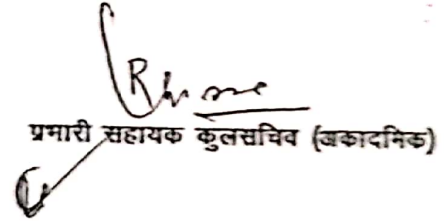 प्रभारी सहायक कुलसचिव (अकादमिक)